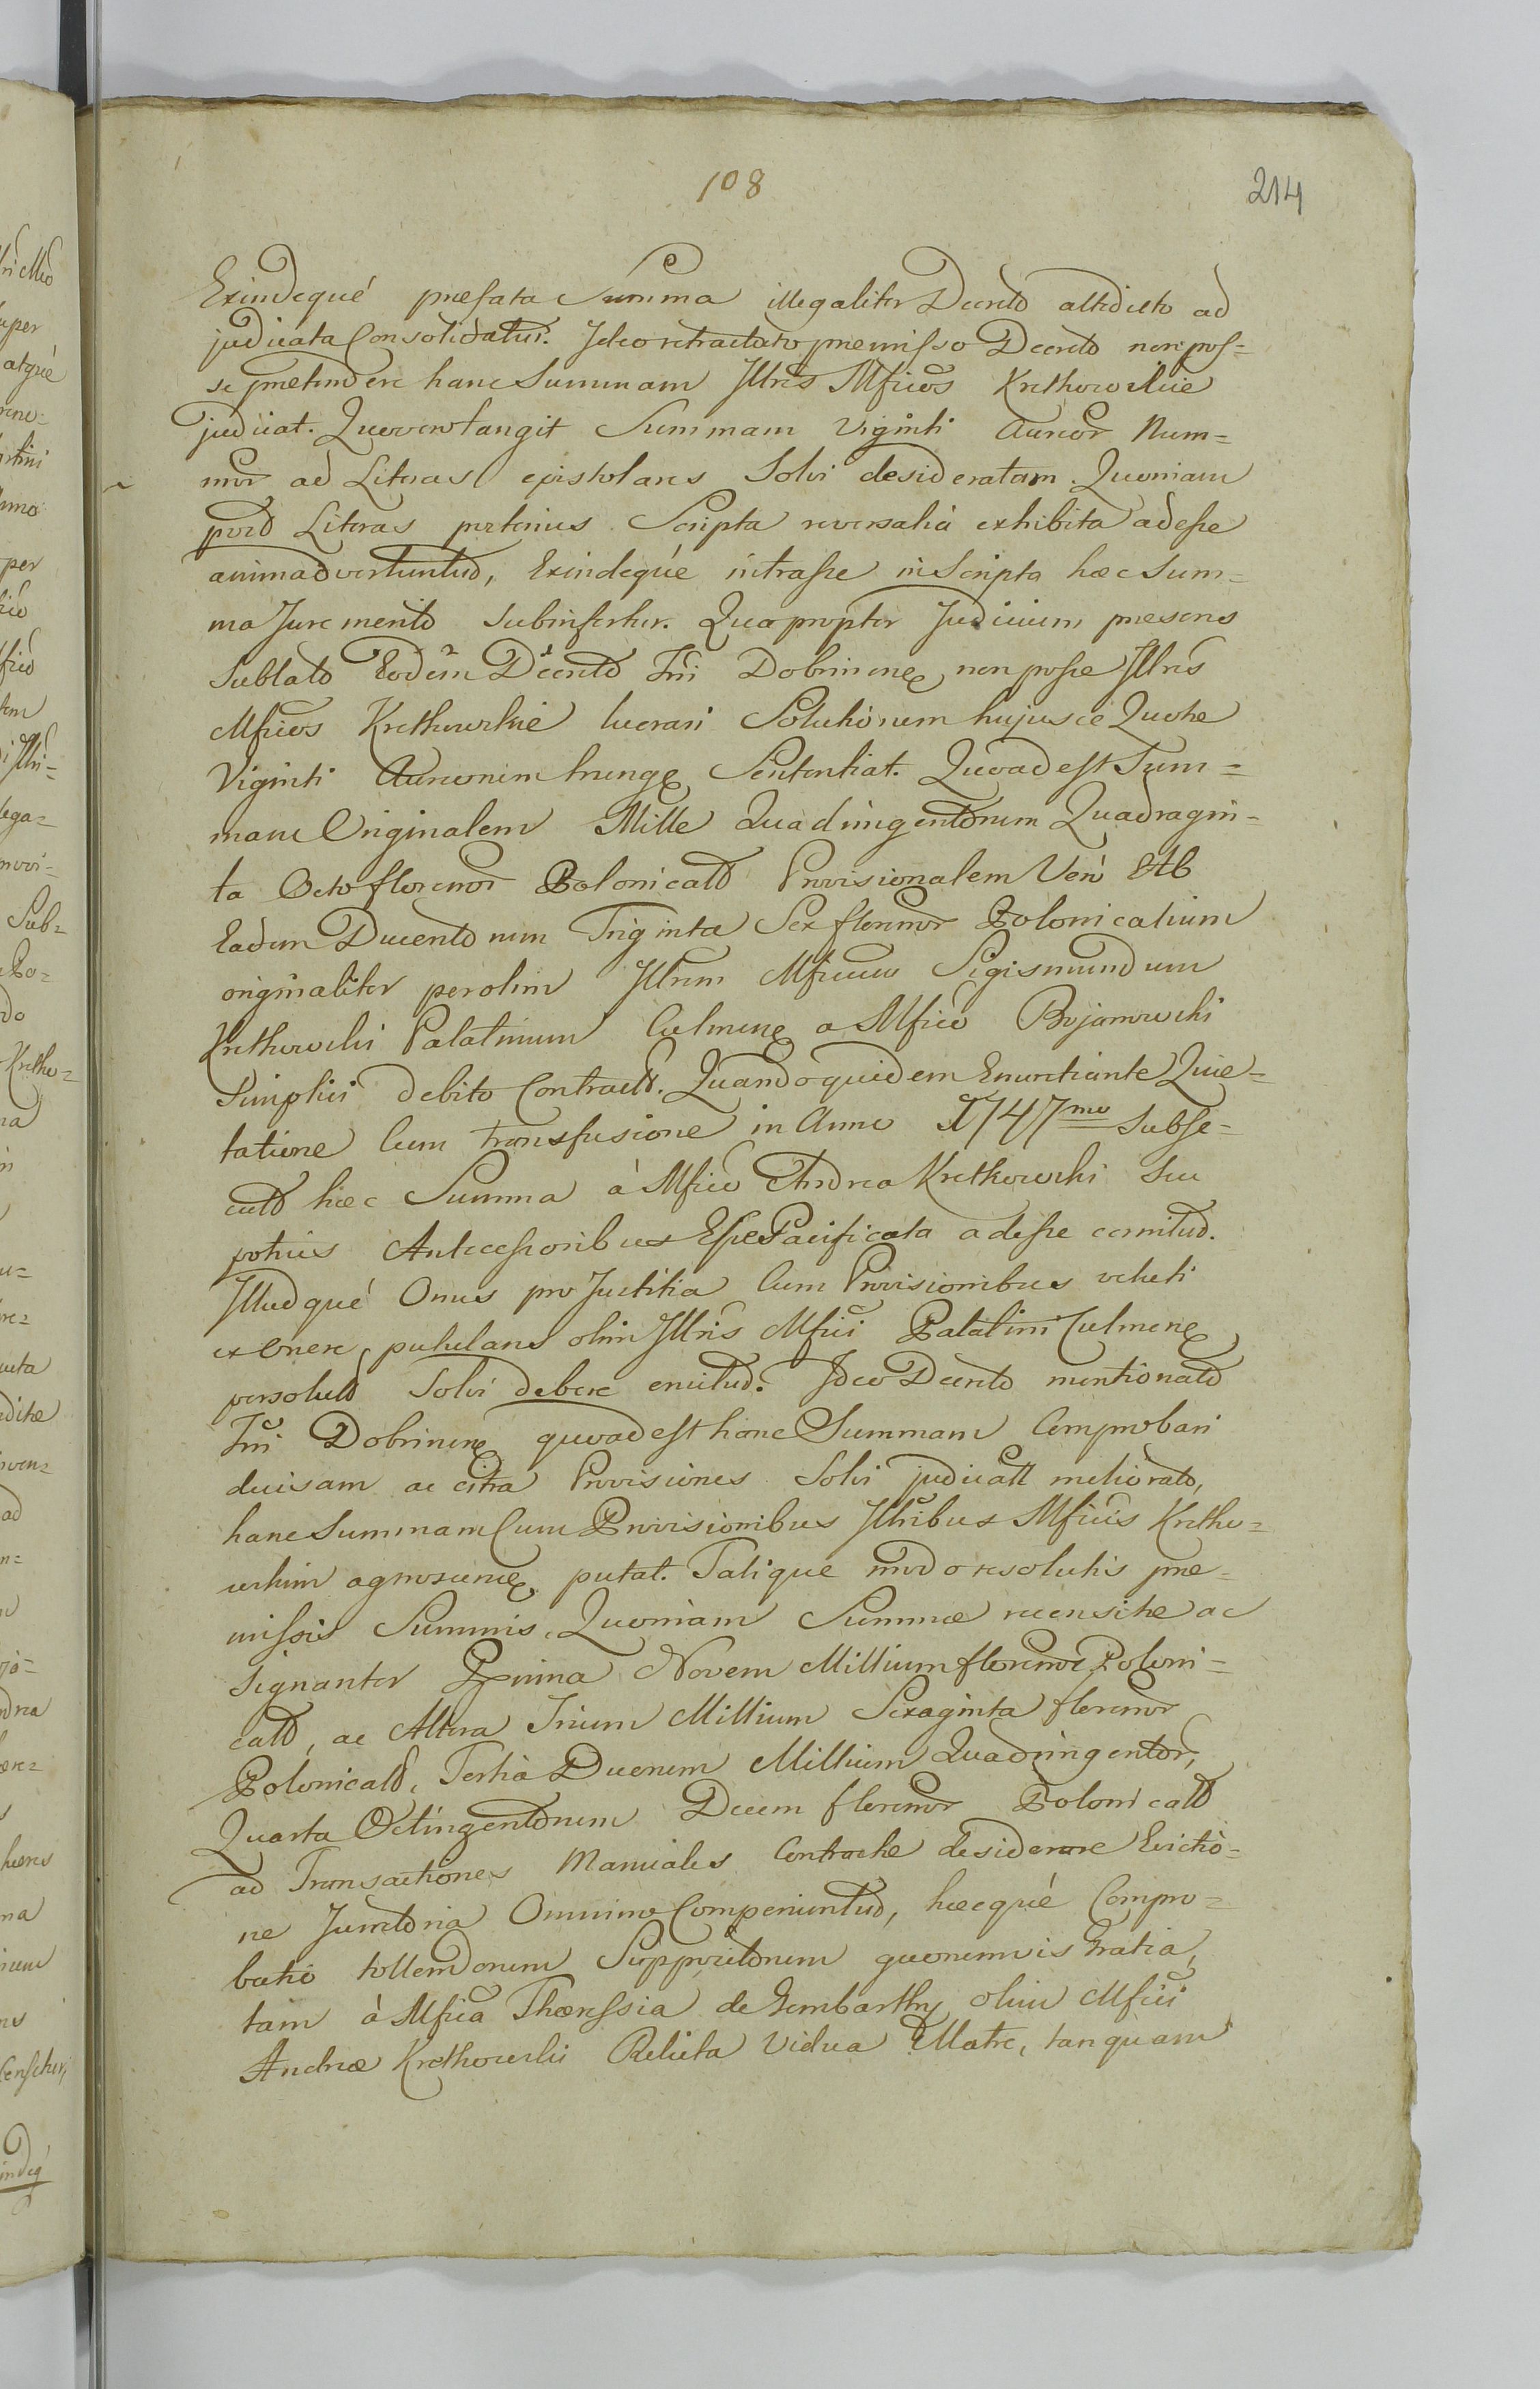 108
214
Exindequé præfata Summa illegaliter Decreto attedicto ad
judicata Consolidatur. Ideo retractato præmisso Decreto non pos=
se prætendere hanc Summam Illres Mficos Krethowskie
judicat. Quovero tangit Summam Viginti Aureor Num=
mor ad Literas epistolares Solvi desideratam. Quoniam
Literas Scripta reversalia exhibita adesse
animadvertuntur, Exindequé intrasse in Scripta hæc Sum=
ma Jure merito subinfertur. Quapropter Judicium præsens
Sublato Eodem Decreto Tri Dobrinen non posse Illres
Mficos Krethowskie lucrari Solutionem hujusce Quotæ
Viginti Aureorum Sententiat. Quoad est Sum=
mam Originalem Mille Quadringentorum Quadragin=
ta Octo florenor Polonicaliu Provisionalem Verò Ab
Eadem Ducentorum Triginta Sex florenor Polonicalium
originaliter per olim Illrem Mficum Sigismundum
Krethowski Palatinum Culmen a Mfico Bojanowski
Simplici debito Contract. Quandoquidem Enunctiante Quie=
tatione Cum transfusione in Anno 1747mo Subse=
cuta hæc Summa à Mfico Andrea Krethowski seu
potius Antecessoribus Esse Pacificata adesse cernitur.
Illudqué Onus pro Justitia Cum Provisionibus veluti
ex Onere pululans olim Illris Mfici Palatini Culmen
Solvi debere enititur. Ideo Decreto mentionato
Tri Dobrinen quoad est hanc Summam Comprobari
decisam ac citra Provisiones Solvi judicatt meliorato,
hanc Summam Cum Provisionibus Illribus Mficis Kretho=
wskim agnoscen putat. Talique modo resolutis præ=
missis Summis, Quoniam Summæ recensitæ ac
signanter Prima Novem Millium florenor Poloni=
calium, ac Altera Trium Millium Sexaginta florenor
Polonicaliu, Tertia Duorum Millium Quadringentor,
Quarta Octingentorum Decem florenor Polonicaliu
ad Transactiones Manuales Contractæ desiderare Evictio=
ne Juratoria Omnino Comperiuntur, hæcqué Compro=
batio tollendorum Suppositorum quorumvis Gratia,
tam à Mfica Theressia de Gembarthy olim Mfici
Andreæ Krethowski Relicta Vidua Matre, tanquam